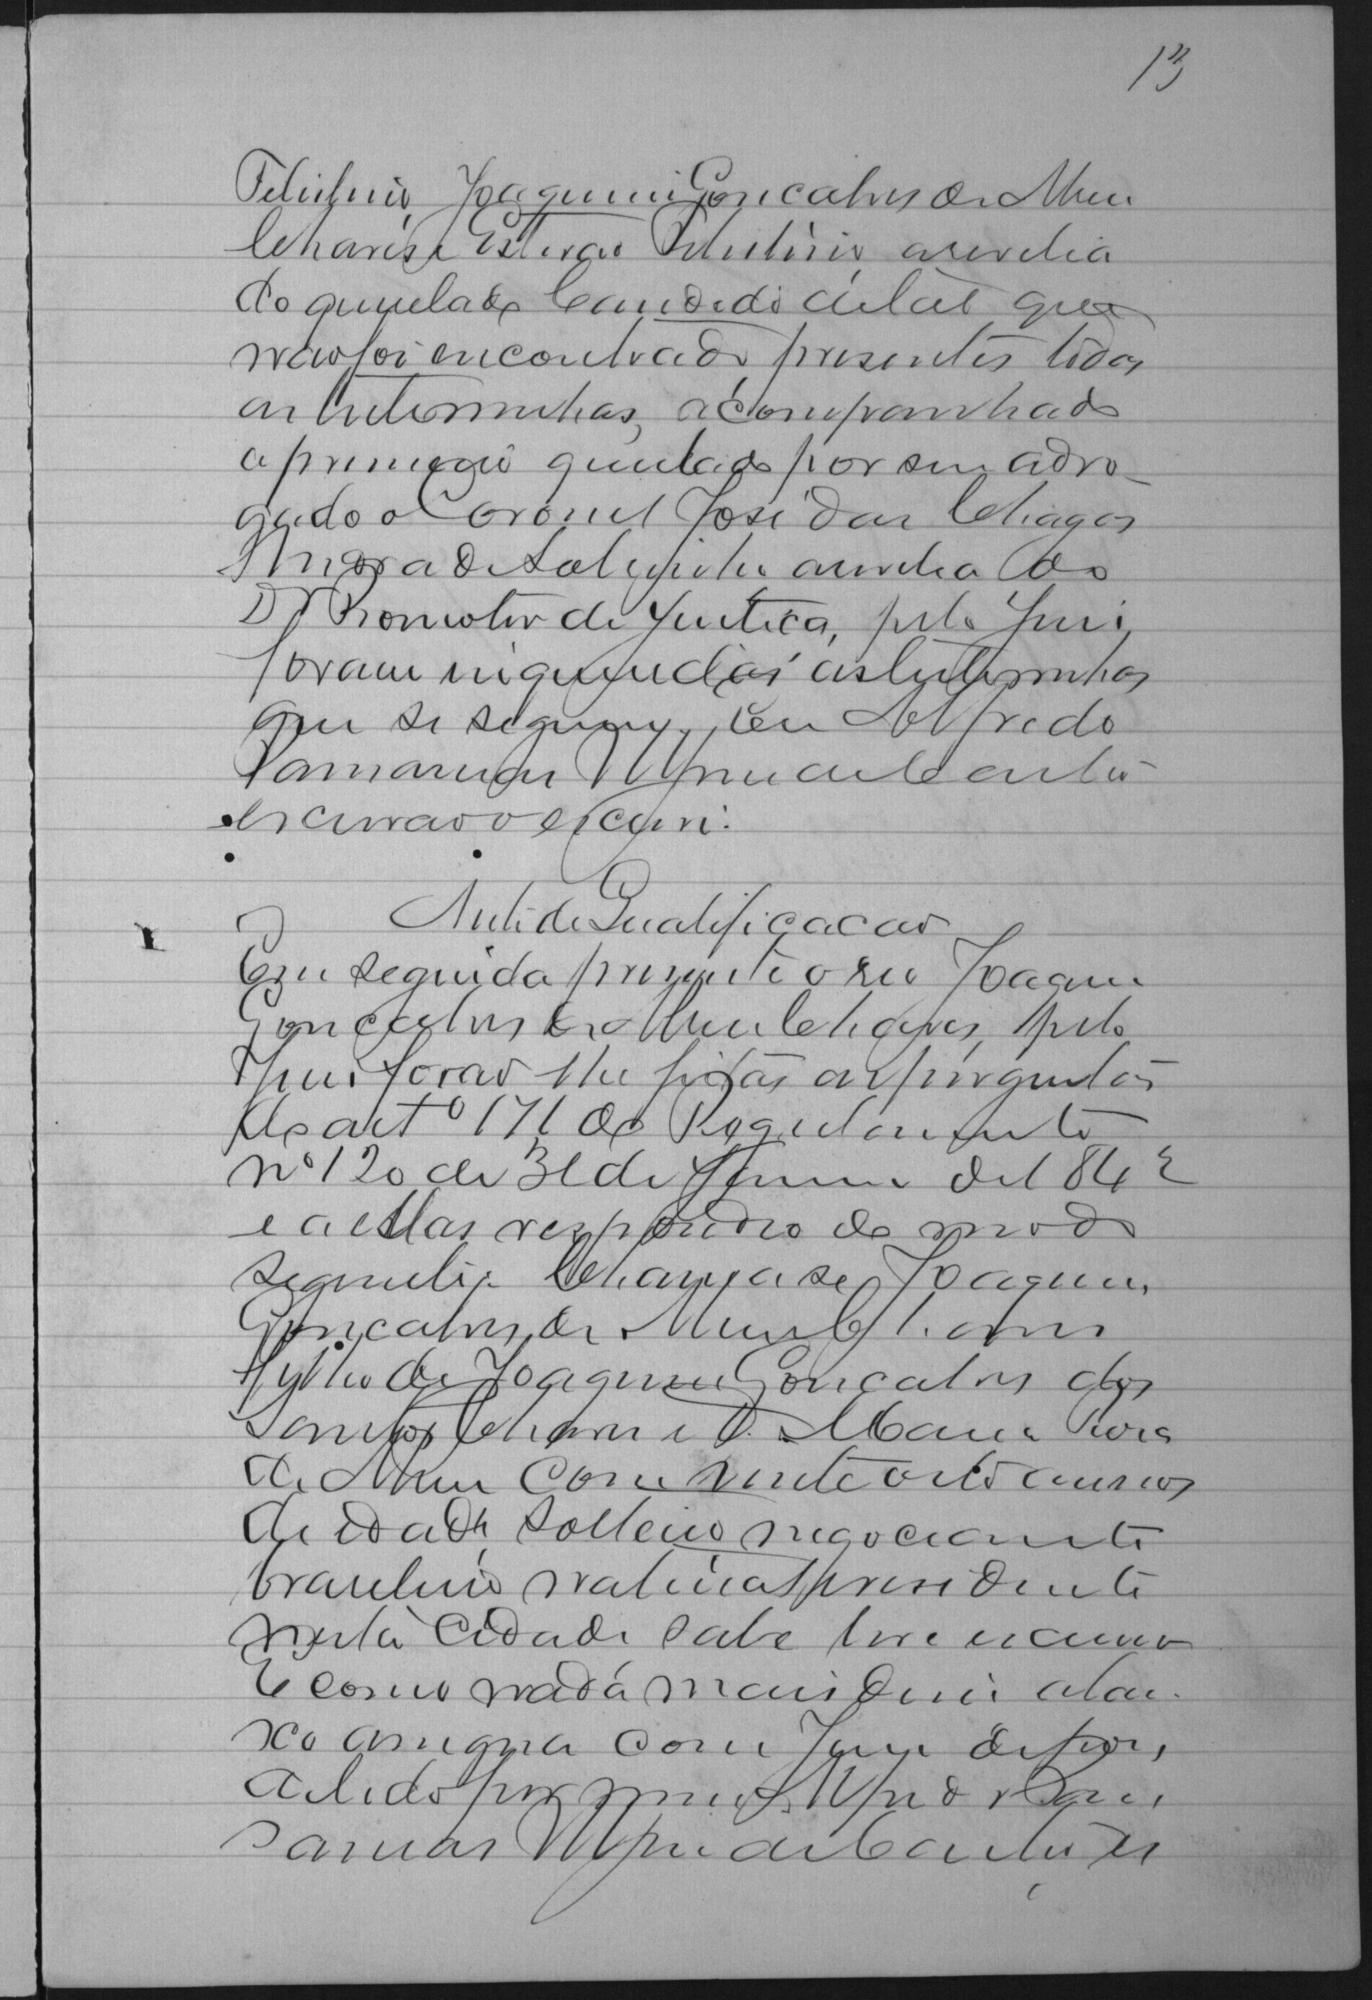 13
Joaquim Gonçalves de Mene
Chaves e Estevão arevelia
do queixado Candido que
não foi encontrado, presentes todas
as testemunhas, acompanhado
o primeiro queixado por seu advo-
gado o Coronel José das Chagas
arevelia do
Dr Promotor de Justiça, pelo Juiz
foram inqueridas as testemunhas
que se seguem, Eu Alfredo
escrivão o escrevi.
Auto de Qualificação
Em seguida presente o reo Joaquim
Gonçalves de Chaves, pelo
Juiz forão lhe feitas as perguntas
do artº 171 do Regulamento
nº 120 de 31 de Janeiro de 1842
e a ellas respondeo do modo
seguinte. Chamar-se Joaquim
Gonçalves de Chaves
filho de Joaquim Gonçalves dos
Santos Chaves e D. Maria
de com vinte oito annos
de idade, solteiro negociante
brasileiro residente
nesta cidade sabe ler e escrever
E como nada mais disse abai-
xo assigna com Juiz depois
de lido por mim Alfredo